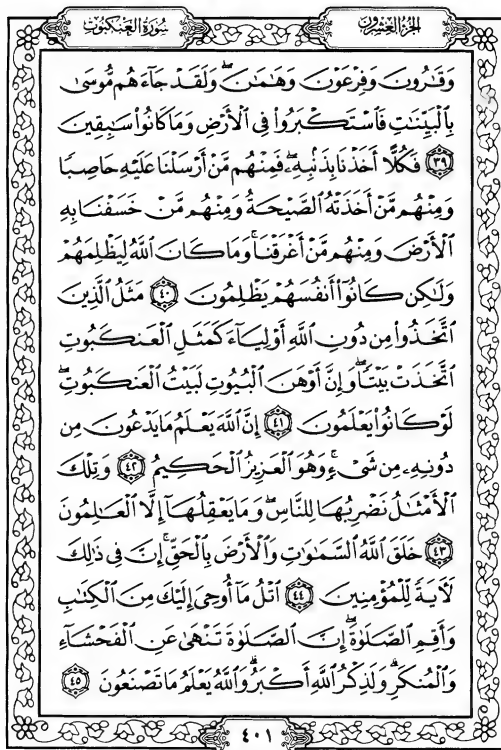 سُورَةُ العَنكبُوت
الجُزءُ العِشرُون
وَقَٰرُونَ وَفِرْعَوْنَ وَهَٰمَٰنَۖ وَلَقَدْ جَآءَهُم مُّوسَىٰ
بِٱلْبَيِّنَٰتِ فَٱسْتَكْبَرُوا۟ فِى ٱلْأَرْضِ وَمَا كَانُوا۟ سَٰبِقِينَ
٣٩ فَكُلًّا أَخَذْنَا بِذَنۢبِهِۦۖ فَمِنْهُم مَّنْ أَرْسَلْنَا عَلَيْهِ حَاصِبًا
وَمِنْهُم مَّنْ أَخَذَتْهُ ٱلصَّيْحَةُ وَمِنْهُم مَّنْ خَسَفْنَا بِهِ
ٱلْأَرْضَ وَمِنْهُم مَّنْ أَغْرَقْنَاۚ وَمَا كَانَ ٱللَّهُ لِيَظْلِمَهُمْ
وَلَٰكِن كَانُوٓا۟ أَنفُسَهُمْ يَظْلِمُونَ ٤٠ مَثَلُ ٱلَّذِينَ
ٱتَّخَذُوا۟ مِن دُونِ ٱللَّهِ أَوْلِيَآءَ كَمَثَلِ ٱلْعَنكَبُوتِ
ٱتَّخَذَتْ بَيْتًاۖ وَإِنَّ أَوْهَنَ ٱلْبُيُوتِ لَبَيْتُ ٱلْعَنكَبُوتِۖ
لَوْ كَانُوا۟ يَعْلَمُونَ ٤١ إِنَّ ٱللَّهَ يَعْلَمُ مَا يَدْعُونَ مِن
دُونِهِۦ مِن شَىْءٍۚ وَهُوَ ٱلْعَزِيزُ ٱلْحَكِيمُ ٤٢ وَتِلْكَ
ٱلْأَمْثَٰلُ نَضْرِبُهَا لِلنَّاسِۖ وَمَا يَعْقِلُهَآ إِلَّا ٱلْعَٰلِمُونَ
٤٣ خَلَقَ ٱللَّهُ ٱلسَّمَٰوَٰتِ وَٱلْأَرْضَ بِٱلْحَقِّۚ إِنَّ فِى ذَٰلِكَ
لَءَايَةً لِّلْمُؤْمِنِينَ ٤٤ ٱتْلُ مَآ أُوحِىَ إِلَيْكَ مِنَ ٱلْكِتَٰبِ
وَأَقِمِ ٱلصَّلَوٰةَۖ إِنَّ ٱلصَّلَوٰةَ تَنْهَىٰ عَنِ ٱلْفَحْشَآءِ
وَٱلْمُنكَرِۗ وَلَذِكْرُ ٱللَّهِ أَكْبَرُۗ وَٱللَّهُ يَعْلَمُ مَا تَصْنَعُونَ ٤٥
٤٠١